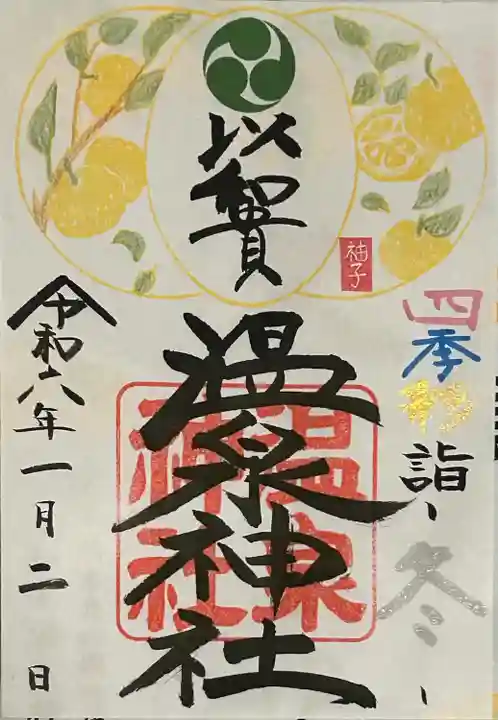 以和貴
柚子
四季彩詣〜冬〜
温泉神社
温泉神社
令和六年一月二日